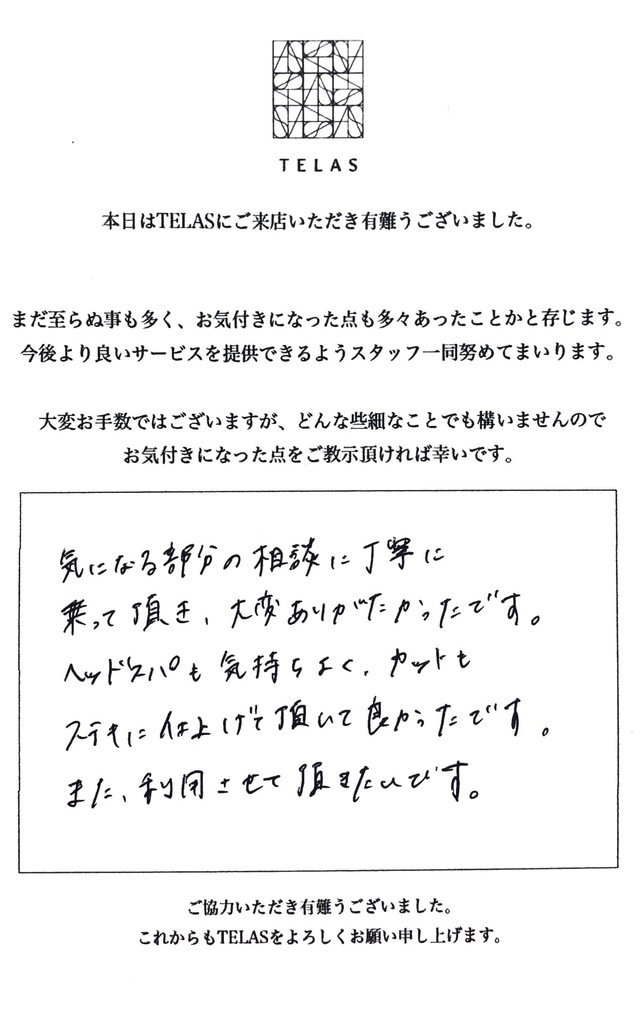 TELAS
本日はTELASにご来店いただき有難うございました。
まだ至らぬ事も多く、お気付きになった点も多々あったことかと存じます。
今後より良いサービスを提供できるようスタッフ一同努めてまいります。
大変お手数ではございますが、どんな些細なことでも構いませんので
お気付きになった点をご教示頂ければ幸いです。
気になる部分の相談に丁寧に
乗って頂き、大変ありがたかったです。
ヘッドスパも気持ちよく、カットも
ステキに仕上げて頂いて良かったです。
また、利用させて頂きたいです。
ご協力いただき有難うございました。
これからもTELASをよろしくお願い申し上げます。